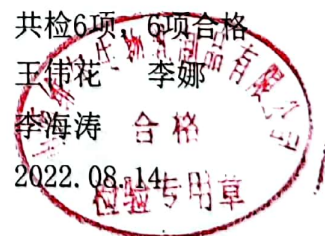 共检6项，6项合格
王伟花 李娜
李海涛
合格
2022.08.14
检验专用章